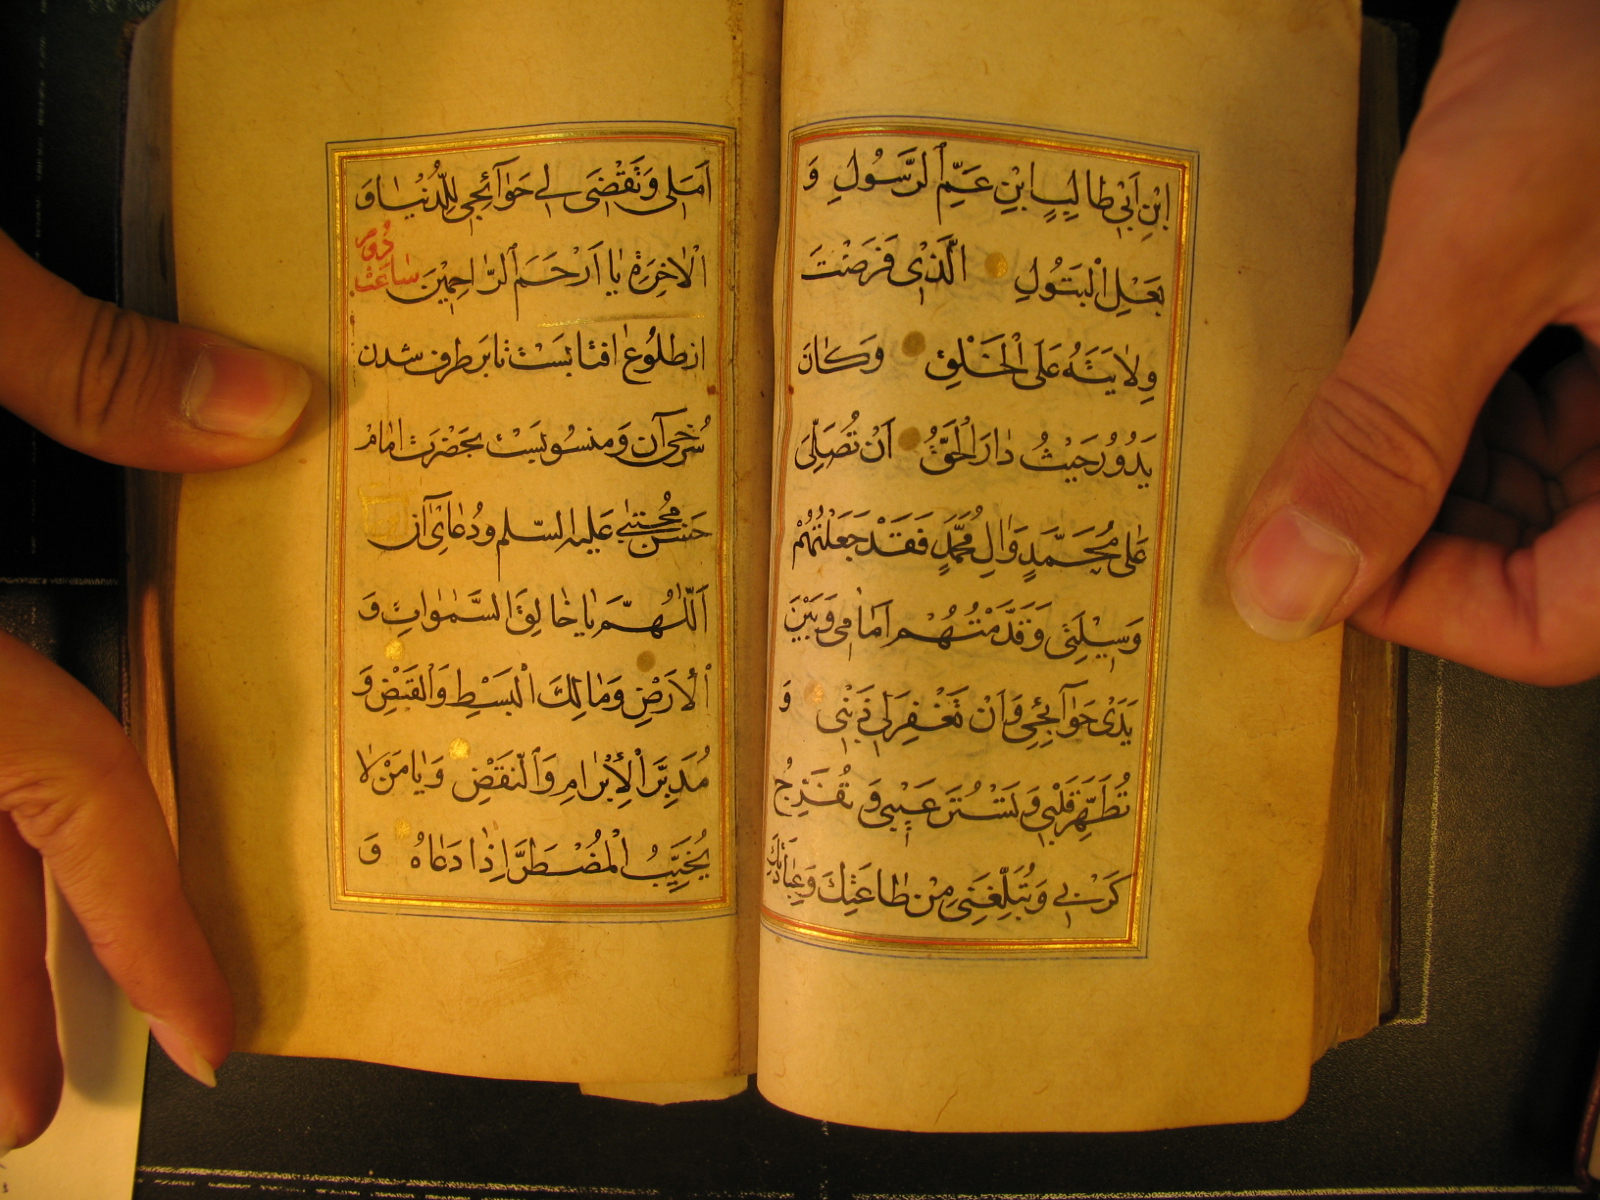 ابْنِ اَبِي طَالِبٍ ابْنِ عَمِّ الرَّسُولِ وَ
بَعْلِ الْبَتُولِ الَّذِي فَرَضْتَ
وِلَايَتَهُ عَلَى الْخَلْقِ وَكَانَ
يَدُورُ حَيْثُ دَارَ الْحَقُّ اَنْ تُصَلِّيَ
عَلَى مُحَمَّدٍ وَالِ مُحَمَّدٍ فَقَدْ جَعَلْتُهُمْ
وَسِيلَتِي وَقَدَّمْتُهُمْ اَمَامِي وَبَيْنَ
يَدَيْ حَوَآئِجِي وَاَنْ تَغْفِرَ لِي ذَنْبِي وَ
تُطَهِّرَ قَلْبِي وَتَسْتُرَ عَيْبِي وَ تُفَرِّجُ
كَرْبِي وَتُبَلِّغَنِي مِنْ طَاعَتِكَ وَعِبَادَتِكَ
اَمَلِي وَتَقْضَى لِي حَوَآئِجِي لِلدُّنْيَا وَ
الْاخِرَةِ يَا اَرْحَمَ الرَّاحِمِينَ ساعَتْ دُوم
از طلُوع افتابست تا برَطرف شدن
سُرخی آن وَ منسوبست بحَضْرَت امَامْ
حَسَنْ مُجْتبٰی عَلَیه السّلم ودُعَائ آن
اَللّٰهُمَّ يَا خَالِقَ السَّمٰوَاتِ وَ
الْاَرْضِ وَمَالِكَ الْبَسْطِ وَالْقَبْضِ وَ
مُدَبِّرَ الْاِبْرَامِ وَالنَّقْضِ وَيَا مَنْ لَا
يُخَيِّبُ الْمُضْطَرَّ اِذَا دَعَاهُ وَ